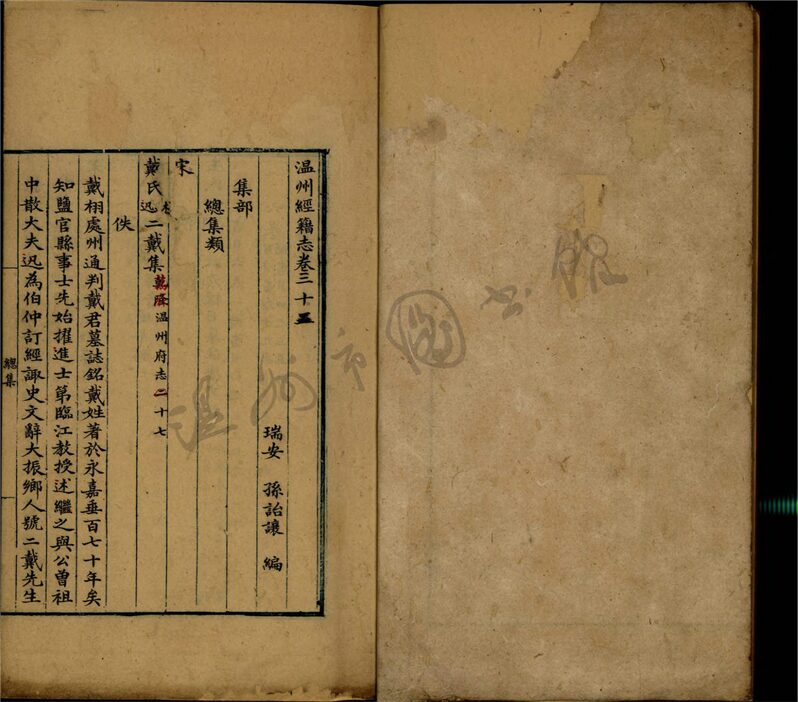 温州經籍志卷三十五
瑞安 孫詒讓 編
集部
總集類
宋
戴氏迅二戴集萬厤温州府志二十七
佚
戴栩處州通判戴君墓誌銘戴姓著於永嘉垂百七十年矣
知鹽官縣事士先始擢進士第臨江教授述繼之與公曾祖
中散大夫迅為伯仲訂經諏史文辭大振鄉人號二戴先生
總集
温州市图书馆